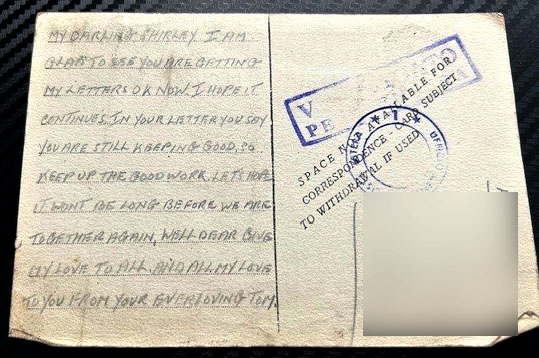 MY DARLING SHIRLEY I AM
GLAD TO SEE YOU ARE GETTING
MY LETTERS OK NOW. I HOPE IT
CONTINUES. IN YOUR LETTER YOU SAY
YOU ARE STILL KEEPING GOOD, SO
KEEP UP THE GOOD WORK. LETS HOPE
IT WONT BE LONG BEFORE WE ARE
TOGETHER AGAIN, WELL DEAR GIVE
MY LOVE TO ALL. AND ALL MY LOVE
TO YOU FROM YOUR EVERLOVING TOM.
SPACE AVAILABLE FOR
CORRESPONDENCE - CARD SUBJECT
TO WITHDRAWAL IF USED
1